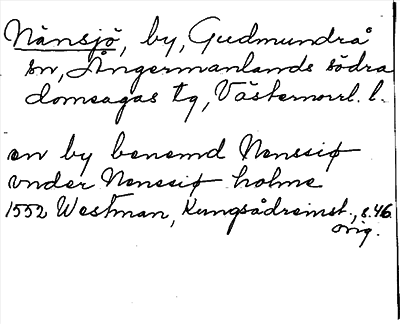 Nänsjö, by, Gudmundrå
sn, Ångermanlands södra
domsagas tg, Västernorrl. l.
en by benemd Nenssiø
vnder Nenssiø holme
1552 Westman, Kungsådreinst., s. 46
orig.